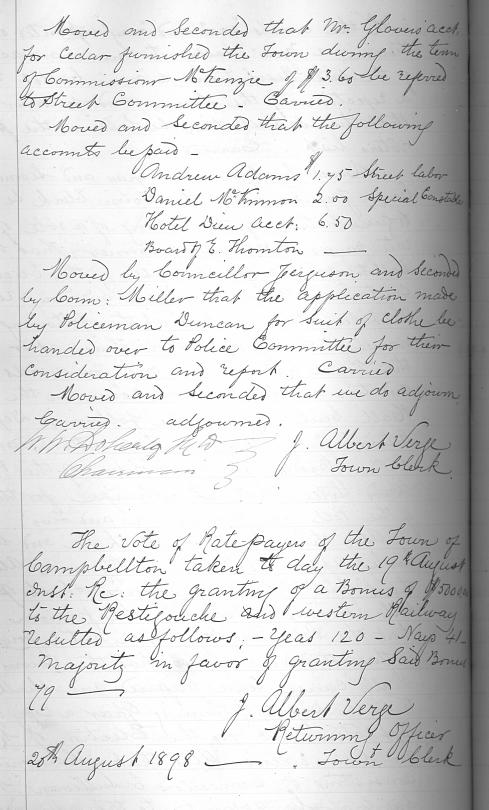 Moved and Seconded that Mr. Glover's acct.
for Cedar furnished the Town during the term
of Commissioner McKenzie of $3.65 be referred
to Street Committee - Carried.
Moved and Seconded that the following
accounts be paid -
Andrew Adams $1.75 Street labor
Daniel McKinnon 2.00 Special Constable
Hotel Dieu Acct: 6.50
Board of E. Thornton —
Moved by Councillor Ferguson and Seconded
by Coun: Miller that the application made
by Policeman Duncan for Suit of clothe be
handed over to Police Committee for their
Consideration and report. Carried
Moved and Seconded that we do adjourn.
Carried. adjourned.
W. W. Doherty M.D
Chairman
J. Albert Verge
Town Clerk.
The Vote of Ratepayers of the Town of
Campbellton taken to day the 19th August
Inst: Re: the granting of a Bonus of
to the Restigouche and western Railway
resulted as follows; - Yeas 120 - Nays 41 -
Majority in favor of granting Said Bonus
79 —
J. Albert Verge
Returning Officer
20th August 1898 — Town Clerk